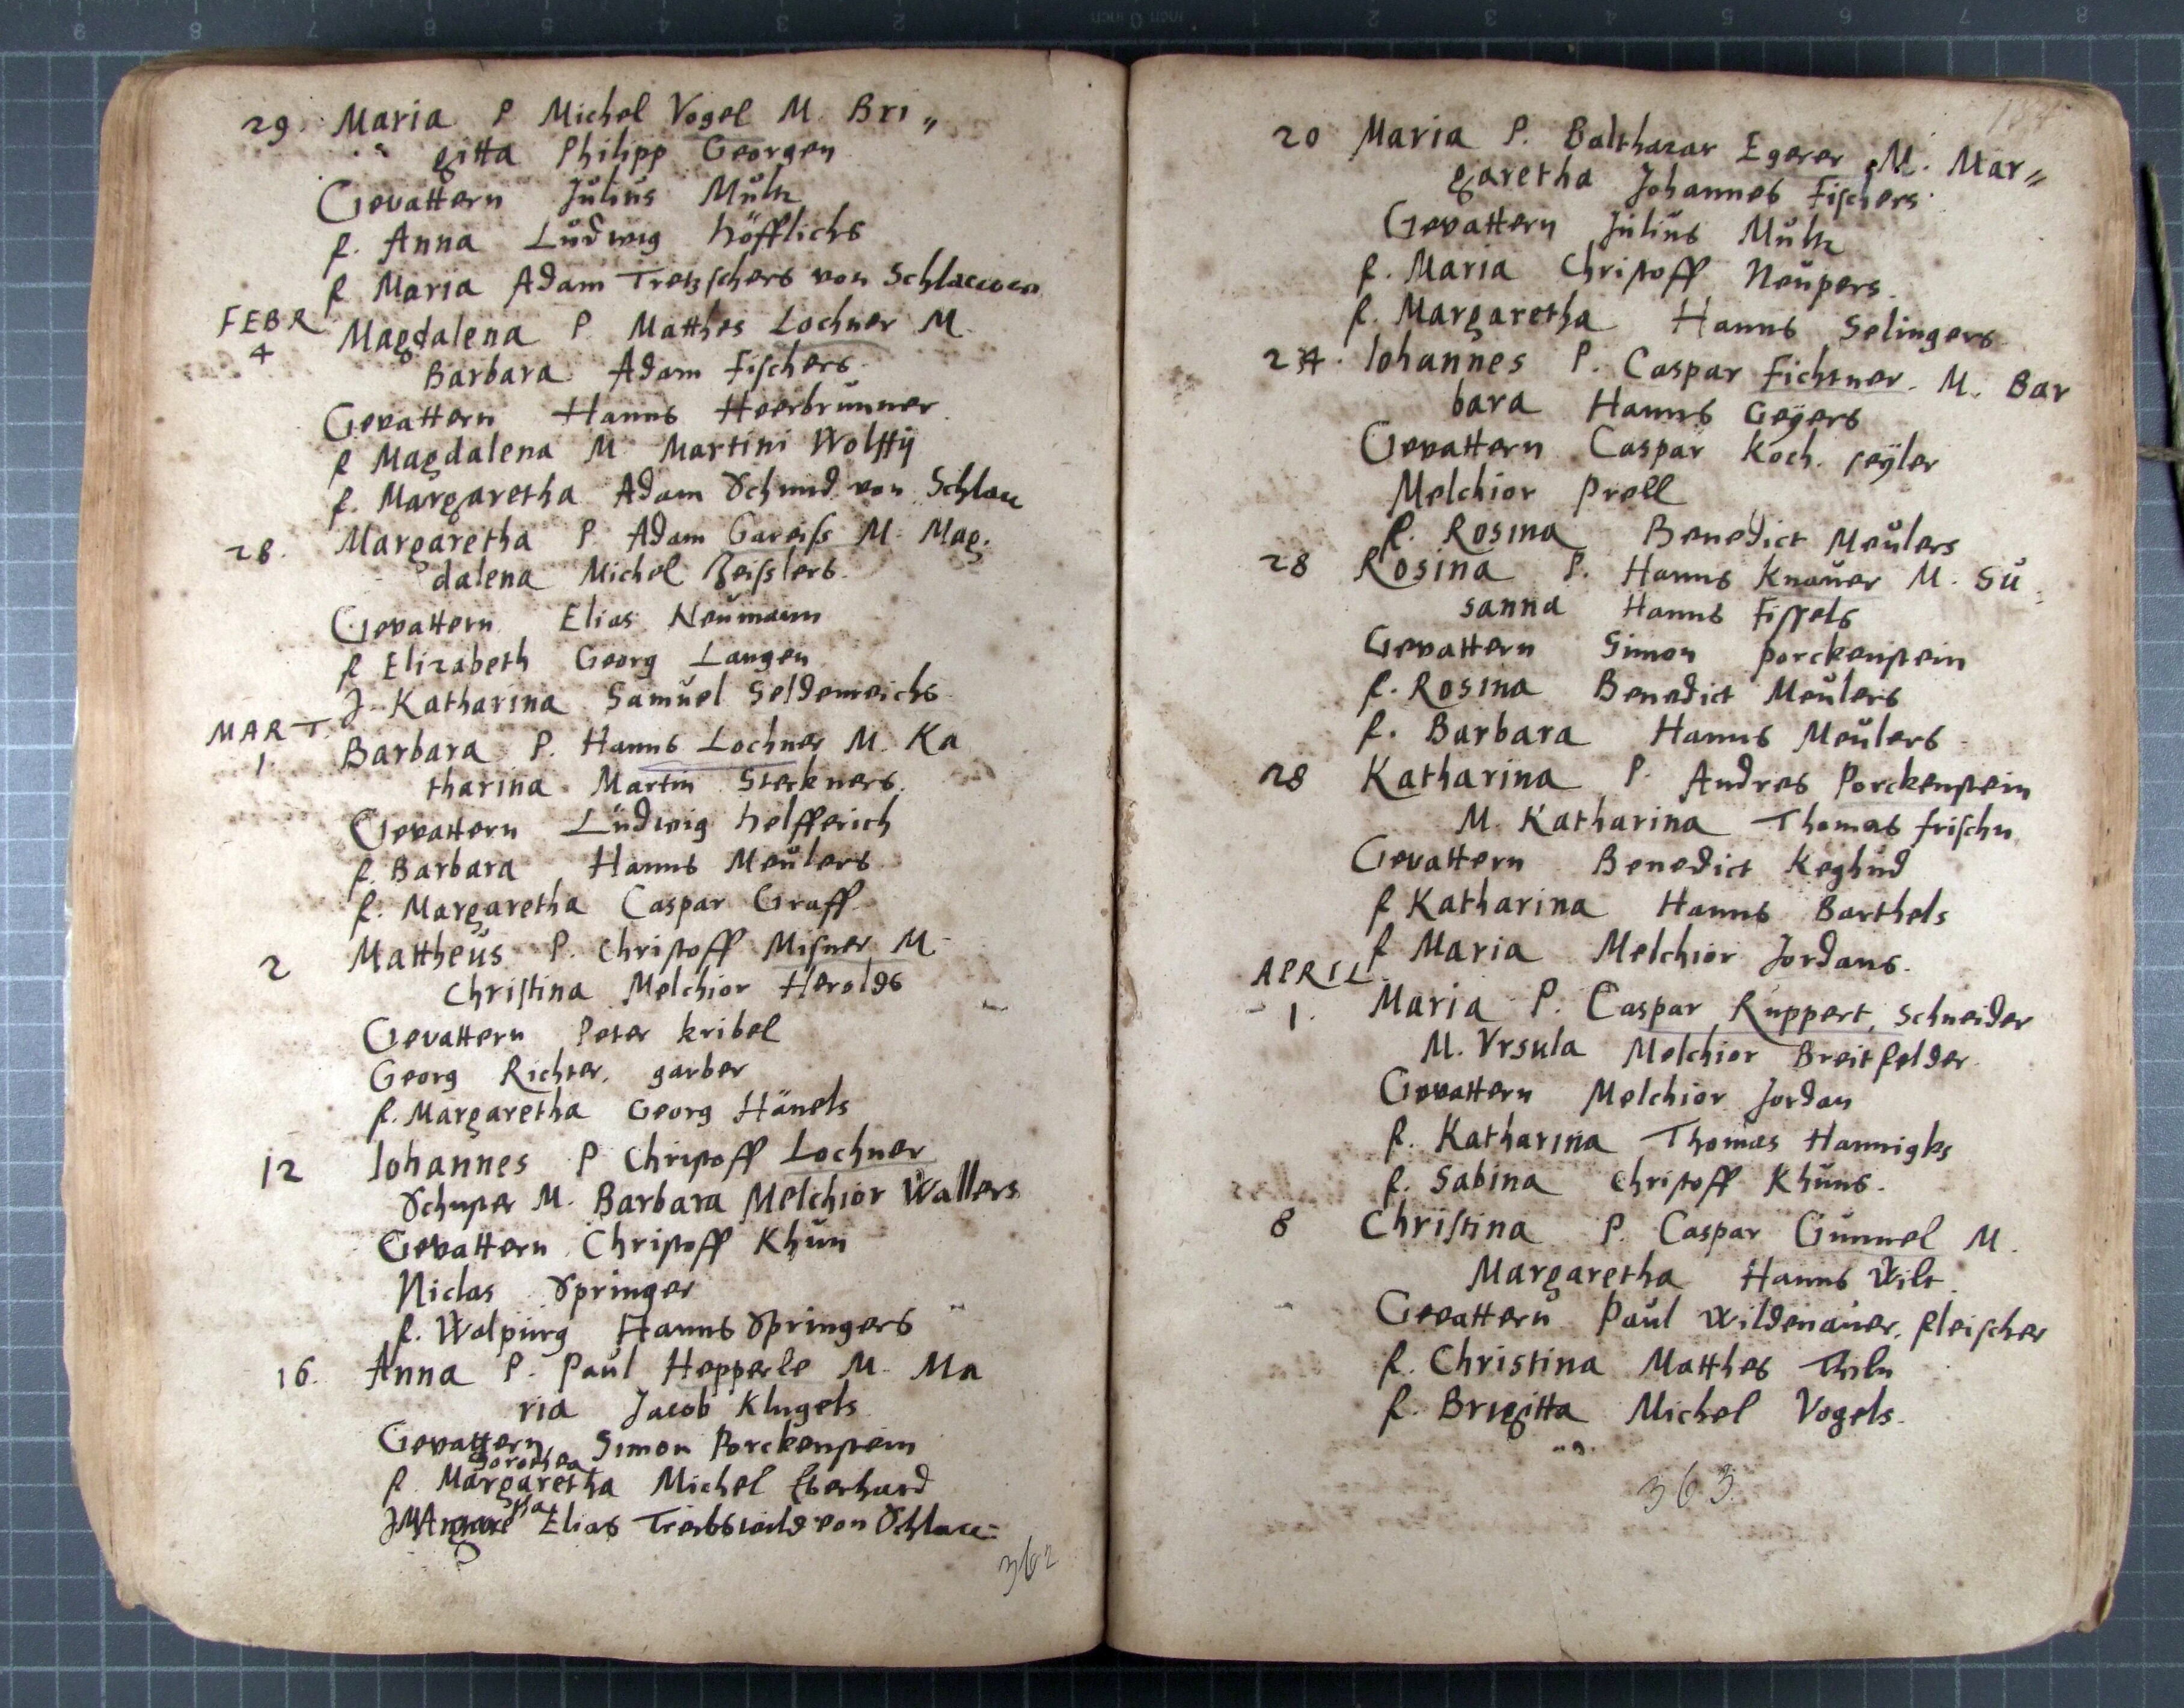 29. Maria P Michel Vogel M. Bri „
gitta Philipp Georgen
Gevattern Julius Multz
f. Anna Ludwig Höfflichs
f. Maria Adam Tretzschers von
FEBR
4
Magdalena P Matthes Lochner M.
Barbara Adam Fischers
Gevattern Hanns Heerbrunner
f Magdalena M Martini Wolffij
f. Margaretha Adam Schmid von Schlau
28. Margaretha P Adam Gareiss M. Mag.
dalena Michel Zeisslers.
Gevattern Elias Neumann
f Elizabeth Georg Langen
J. Katharina Samuel Seldenreichs
MART.
1. Barbara P. Hanns Lochner M. Ka
tharina Martin Sterkners.
Gevattern Ludwig Helfferich
f. Barbara Hanns Meulers
f. Margaretha Caspar Graff
2 Mattheus P. Christoff Misner M
Christina Melchior Herolds
Gevattern Peter Kribel
Georg Richter, garber
f. Margaretha Georg Hänels
12 Johannes P Christoff Lochner
Schuster M. Barbara Melchior Wallers
Gevattern Christoff Khün
Niclas Springer
f. Walpurg Hanns Springers
16. Anna P. Paul Hepperle M. Ma
ria Jacob Klugels
Gevattern Simon Porckenstein
Dorothea
f. Margaretha Michel Eberhard
Elias von Schlau=
362
20 Maria P. Balthazar Egerer M. Mar„
garetha Johannes Fischers.
Gevattern Julius Multz
f. Maria Christoff Neupers.
f. Margaretha Hanns Selingers
24. Johannes P. Caspar Fichtner. M. Bar
bara Hanns Geÿers
Gevattern Caspar Koch. seÿler
Melchior Prell
f. Rosina Benedict Meulers
28 Rosina P. Hanns Knauer M. Su
sanna Hanns Fissels
Gevattern Simon Porckenstein
f. Rosina Benedict Meulers
f. Barbara Hanns Meulers
28 Katharina P. Andres Porckenstein
M. Katharina Thomas
Gevattern Benedict
f Katharina Hanns Barthels
f Maria Melchior Jordans.
APRIL.
1. Maria P. Caspar Ruppert, Schneider
M. Vrsula Melchior Breitfelder
Gevattern Melchior Jordan
f. Katharina Thomas Hannigks
f. Sabina Christoff Khüns.
8 Christina P. Caspar Gunnel M.
Margaretha Hanns Wilt
Gevattern Paul Wildenauer, fleischer
f. Christina Matthes
f. Brigitta Michel Vogels.
363.